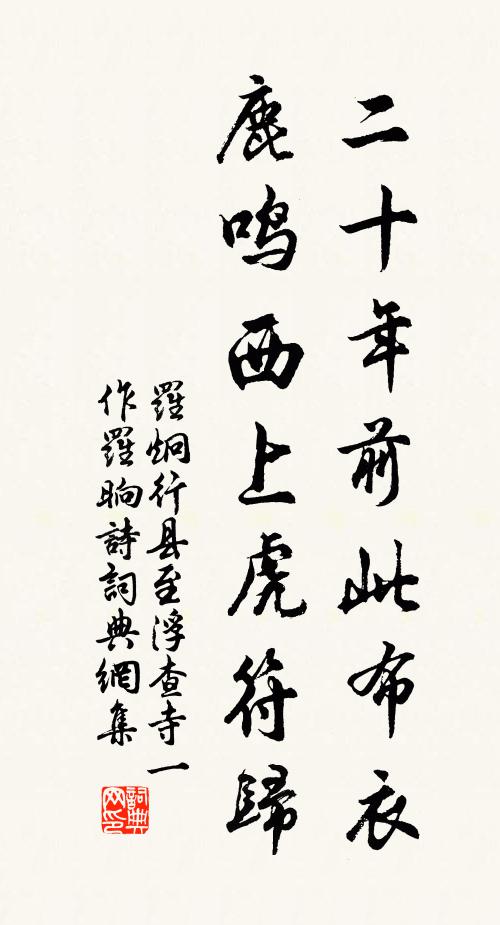 二十年前此布衣
鹿鸣西上虎符歸
羅炯行县至浮查寺一
作羅晌詩詞典網集
詞典网印